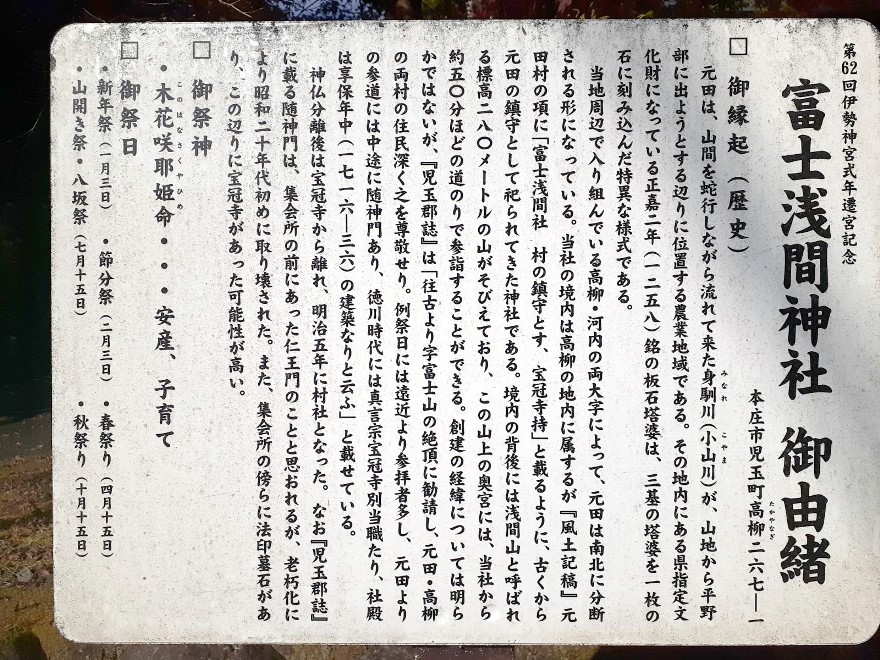 第62回伊勢神宮式年遷宮記念
富士浅間神社 御由緒
本庄市児玉町高柳二六七―一
たかやなぎ
□ 御縁起（歴史）
みなれ こやま
元田は、山間を蛇行しながら流れて来た身馴川（小山川）が、山地から平野
部に出ようとする辺りに位置する農業地域である。その地内にある県指定文
化財になっている正嘉二年（一二五八）銘の板石塔婆は、三基の塔婆を一枚の
石に刻み込んだ特異な様式である。
当地周辺で入り組んでいる高柳・河内の両大字によって、元田は南北に分断
される形になっている。当社の境内は高柳の地内に属するが『風土記稿』元
田村の項に「富士浅間社 村の鎮守とす、宝冠寺持」と載るように、古くから
元田の鎮守として祀られてきた神社である。境内の背後には浅間山と呼ばれ
る標高二八〇メートルの山がそびえており、この山上の奥宮には、当社から
約五〇分ほどの道のりで参詣することができる。創建の経緯については明ら
かではないが、『児玉郡誌』は「往古より字富士山の絶頂に勧請し、元田・高柳
の両村の住民深く之を尊敬せり。例祭日には遠近より参拝者多し、元田より
の参道には中途に随神門あり、徳川時代には真言宗宝冠寺別当職たり、社殿
は享保年中（一七一六―三六）の建築なりと云ふ」と載せている。
神仏分離後は宝冠寺から離れ、明治五年に村社となった。なお『児玉郡誌』
に載る随神門は、集会所の前にあった仁王門のことと思おれるが、老朽化に
より昭和二十年代初めに取り壊された。また、集会所の傍らに法印墓石があ
り、この辺りに宝冠寺があった可能性が高い。
□ 御祭神
このはなさくやひめ
・木花咲耶姫命・・・安産、子育て
□ 御祭日
・新年祭（一月三日） ・節分祭（二月三日） ・春祭り（四月十五日）
・山開き祭・八坂祭（七月十五日） ・秋祭り（十月十五日）